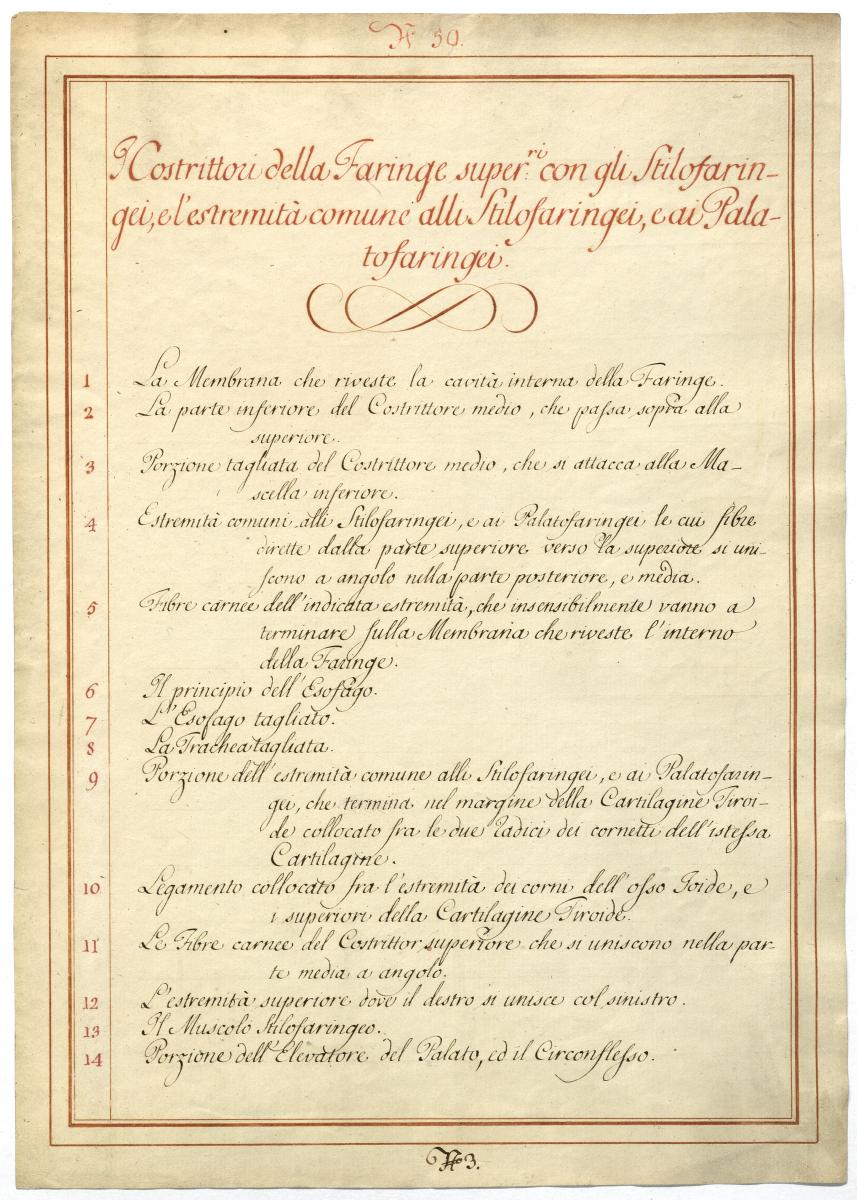 N° 59.
I Costrittori della Faringe super.ri con gli Stilofarin-
gei, e l'estremità comune alli Stilofaringei, e ai Pala-
tofaringei.
1 La Membrana che riveste la cavità interna della Faringe.
2 La parte inferiore del Costrittore medio, che passa sopra alla
superiore.
3 Porzione tagliata del Costrittore medio, che si attacca alla Ma-
scella inferiore.
4 Estremità comuni alli Stilofaringei, e ai Palatofaringei le cui fibre
dirette dalla parte superiore verso la superiore si uni-
scono a angolo nella parte posteriore, e media.
5 Fibre carnee dell'indicata estremità, che insensibilmente vanno a
terminare sulla Membrana che riveste l'interno
della Faringe.
6 Il principio dell'Esofago.
7 L'Esofago tagliato.
8 La Trachea tagliata.
9 Porzione dell'estremità comune alli Stilofaringei, e ai Palatofarin-
gei, che termina nel margine della Cartilagine Tiroi-
de collocato fra le due radici dei cornetti dell'istessa
Cartilagine.
10 Legamento collocato fra l'estremità dei corni dell'osso Ioide, e
i superiori della Cartilagine Tiroide.
11 Le Fibre carnee del Costrittor superiore che si uniscono nella par-
te media a angolo.
12 L'estremità superiore dove il destro si unisce col sinistro.
13 Il Muscolo Stilofaringeo.
14 Porzione dell'Elevatore del Palato, ed il Circonflesso.
N° 3.